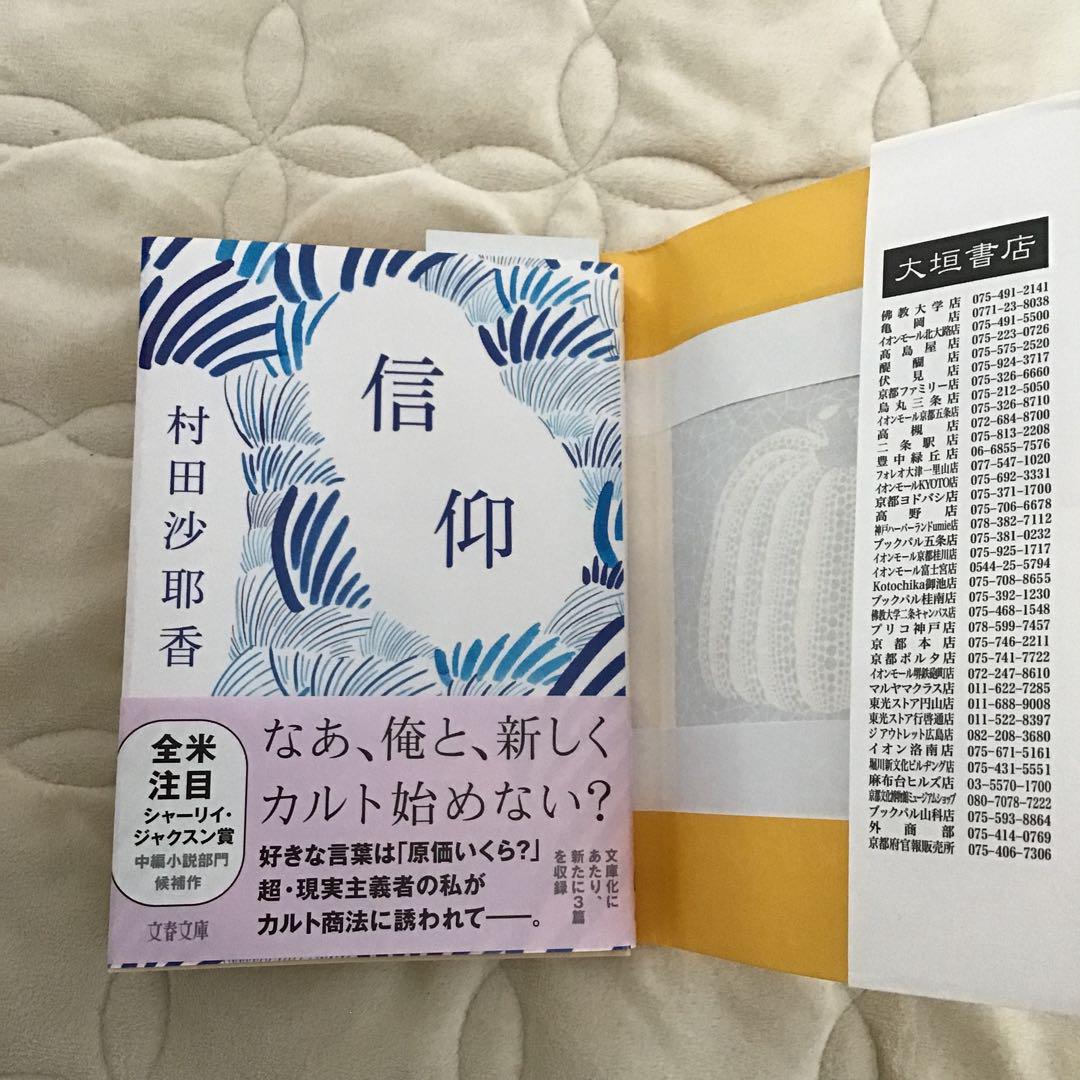 信
仰
村田沙耶香
全米
注目
シャーリイ・
ジャクスン賞
中編小説部門
候補作
文春文庫
なあ、俺と、新しく
カルト始めない?
好きな言葉は「原価いくら?」
超・現実主義者の私が
カルト商法に誘われて――。
文庫化に
あたり、
新たに3篇
を収録
大垣書店
佛教大学店 075-491-2141
亀岡店 0771-23-8038
イオンモール北大路店 075-491-5500
高島屋店 075-223-0726
醍醐店 075-575-2520
伏見店 075-924-3717
京都ファミリー店 075-326-6660
烏丸三条店 075-212-5050
イオンモール京都五条店 075-326-8710
高槻店 072-684-8700
二条駅店 075-813-2208
豊中緑丘店 06-6855-7576
フォレオ大津一里山店 077-547-1020
イオンモールKYOTO店 075-692-3331
京都ヨドバシ店 075-371-1700
高野店 075-706-6678
神戸ハーバーランドumie店 078-382-7112
ブックパル五条店 075-381-0232
イオンモール京都桂川店 075-925-1717
イオンモール富士宮店 0544-25-5794
Kotochika御池店 075-708-8655
ブックパル桂南店 075-392-1230
佛教大学二条キャンパス店 075-468-1548
プリコ神戸店 078-599-7457
京都本店 075-746-2211
京都ポルタ店 075-741-7722
イオンモール堺鉄砲町店 072-247-8610
マルヤマクラス店 011-622-7285
東光ストア円山店 011-688-9008
東光ストア行啓通店 011-522-8397
ジ アウトレット広島店 082-208-3680
イオン洛南店 075-671-5161
堀川新文化ビルヂング店 075-431-5551
麻布台ヒルズ店 03-5570-1700
京都文化博物館ミュージアムショップ 080-7078-7222
ブックパル山科店 075-593-8864
外商部 075-414-0769
京都府官報販売所 075-406-7306